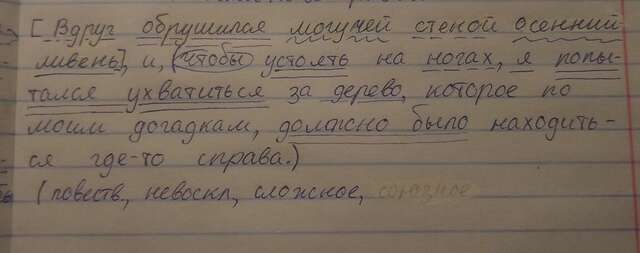 [Вдруг обрушился могучей стеной осенний
ливень], и, (чтобы) устоять на ногах, я попы-
тался ухватиться за дерево, которое по
моим догадкам, должно было находить-
ся где-то справа.)
(повеств., невоскл, сложное, союзное